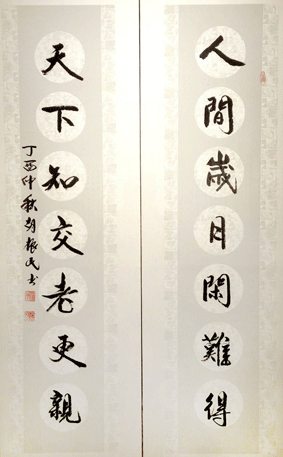 人間歲月閑難得
天下知交老更親
丁酉仲秋胡振民书